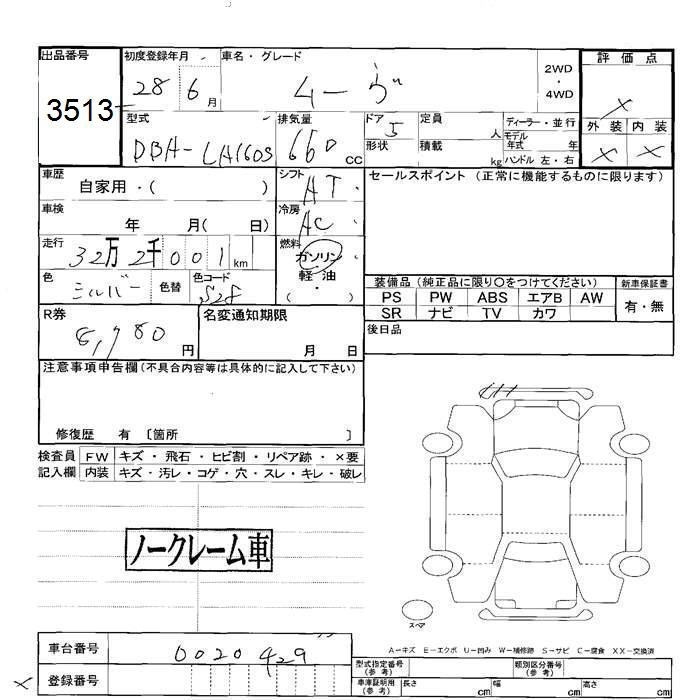 出品番号 初度登録年月 車名・グレード 2WD ・ 4WD 評価点
3513 28 6 月 ムーヴ X
型式 排気量 ドア 5 定員 人 ディーラー・並行 外装 内装
DBA-LA160S 660 cc 形状 積載 kg モデル年式 年 ハンドル 左・右 X X
車歴 シフト AT セールスポイント (正常に機能するものに限ります)
自家用・( )
車検 年 月( 日) 冷房 AC
走行 32万2千001 km 燃料 ガソリン
色 シルバー 色替 色コード S28 軽・油 ( ・ )
装備品 (純正品に限り○をつけてください) 新車保証書
PS PW ABS エアB AW 有・無
SR ナビ TV カワ
R券 8,780 円 名変通知期限 月 日 後日品
注意事項申告欄(不具合内容等は具体的に記入して下さい)
修復歴 有 〔箇所 〕
検査員 FW キズ・飛石・ヒビ割・リペア跡・×要
記入欄 内装 キズ・汚レ・コゲ・穴・スレ・キレ・破レ
ノークレーム車
スペア
A-キズ E-エクボ U-凹み W-補修跡 S-サビ C-腐食 XX-交換済
車台番号 0020429
型式指定番号 (参考) 類別区分番号 (参考)
X 登録番号 車庫証明用 (参考) 長さ cm 幅 cm 高さ cm